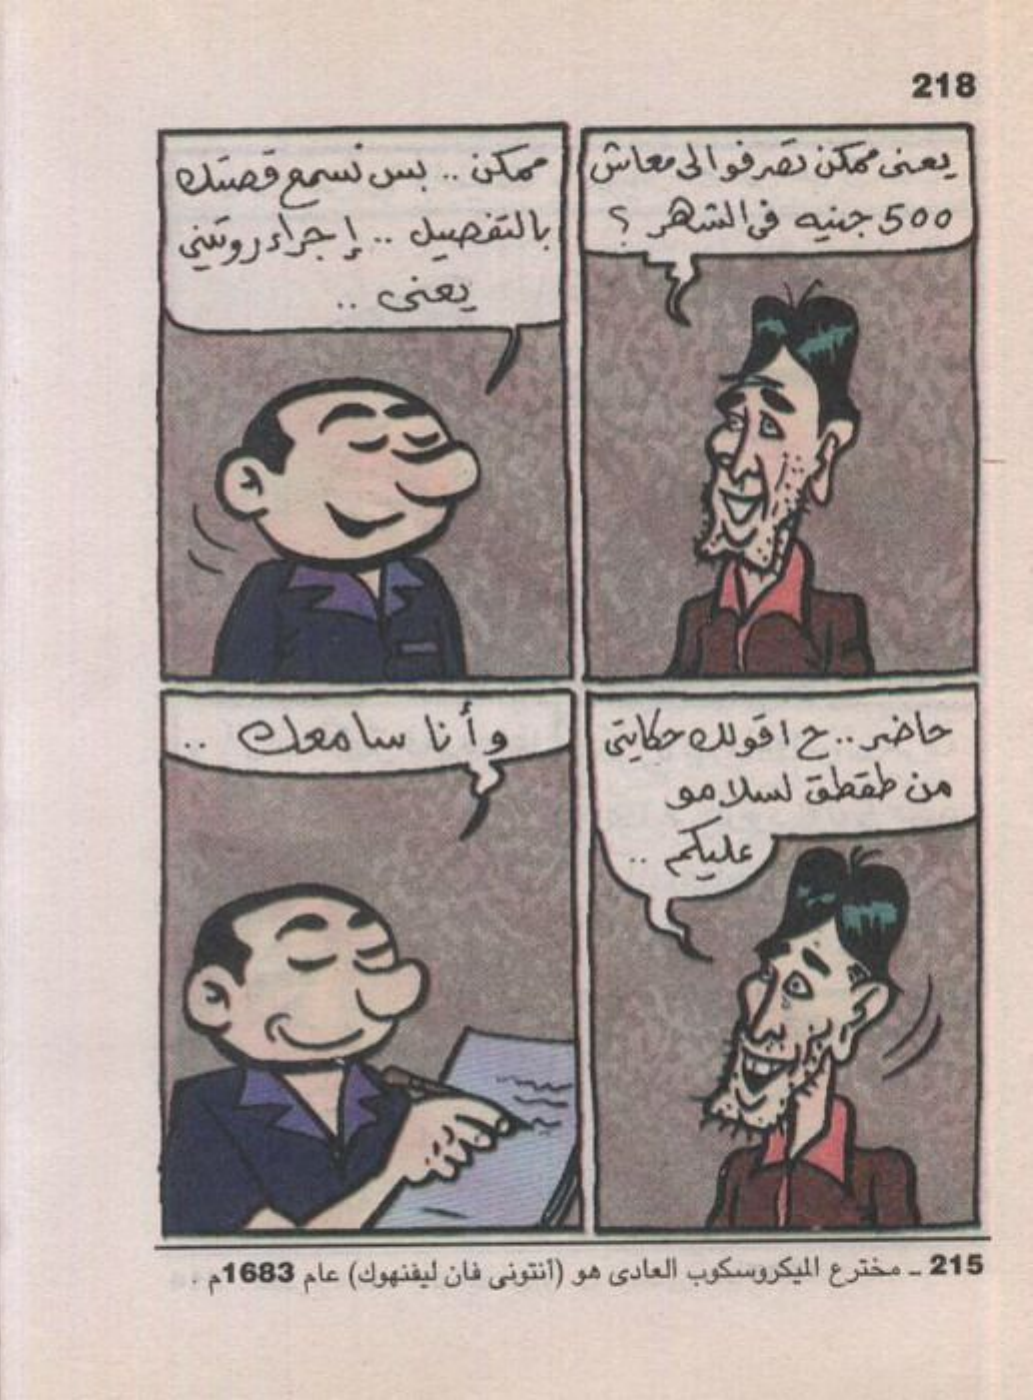 218
يعنى ممكن تصرفوا لى معاش
500 جنيه فى الشهر ؟
ممكن .. بس نسمع قصتك
بالتفصيل .. إجراء روتينى
يعنى ..
حاضر .. ح اقولك حكايتى
من طقطق لسلامو
عليكم ..
وأنا سامعك ..
215 ـ مخترع الميكروسكوب العادى هو (أنتونى فان ليفنهوك) عام 1683م .